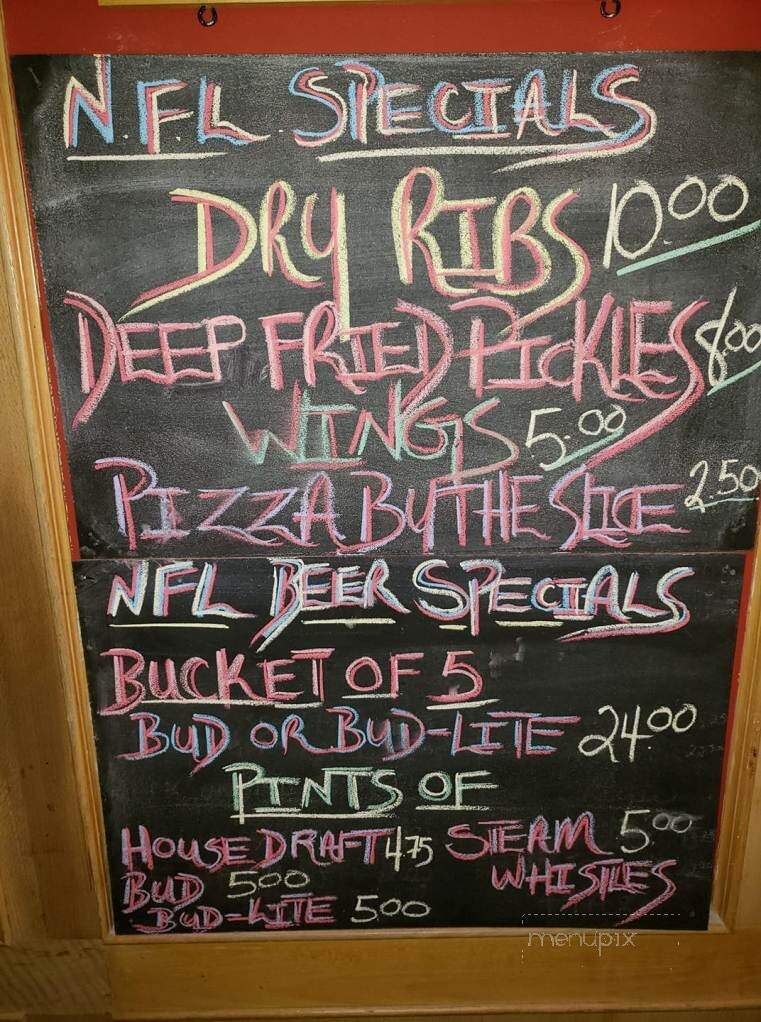 N.F.L. SPECIALS
DRY RIBS 10.00
DEEP FRIED PICKLES 8.00
WINGS 5.00
PIZZA BY THE SLICE 2.50
NFL BEER SPECIALS
BUCKET OF 5
BUD OR BUD-LITE 24.00
PINTS OF
HOUSE DRAFT 4.75 STEAM 5.00
BUD 500 WHISTLES
BUD-LITE 500
menupix